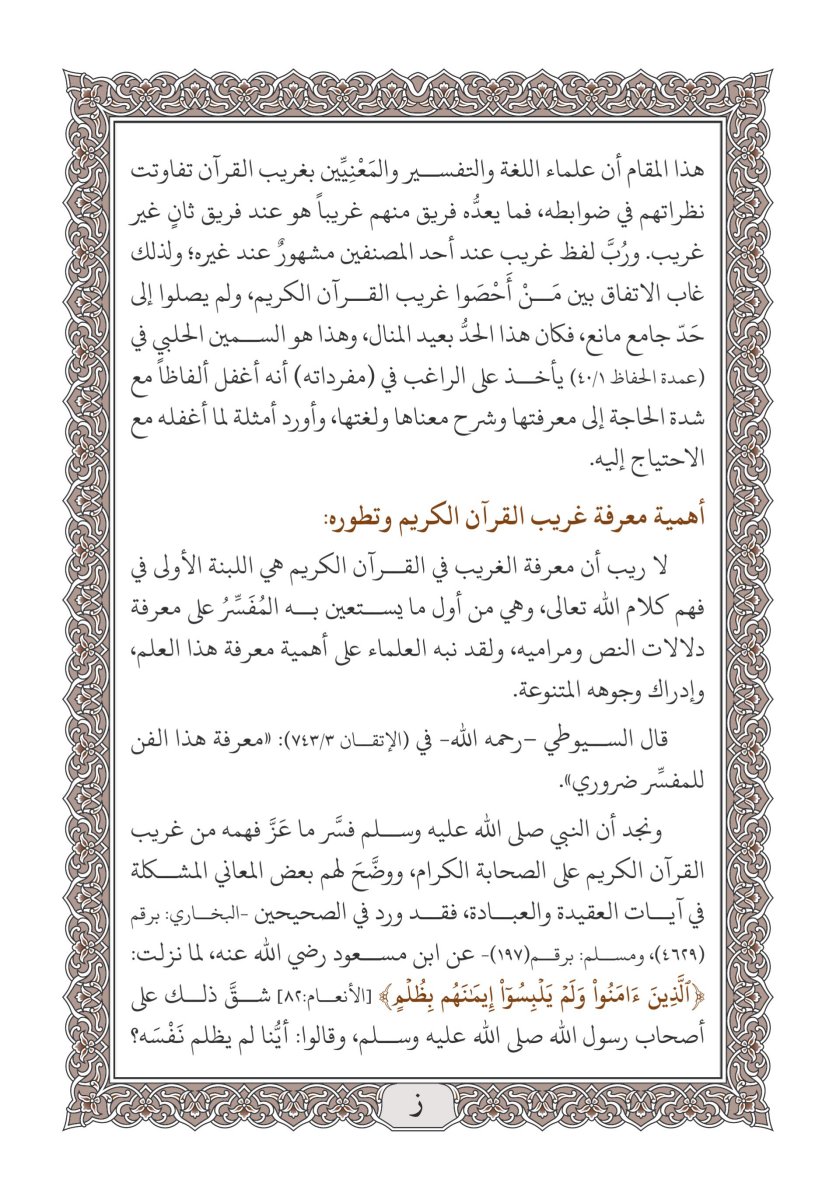 هذا المقام أن علماء اللغة والتفسير والمَعْنِيِّين بغريب القرآن تفاوتت
نظراتهم في ضوابطه، فما يعدُّه فريق منهم غريباً هو عند فريق ثانٍ غير
غريب. ورُبَّ لفظ غريب عند أحد المصنفين مشهورٌ عند غيره؛ ولذلك
غاب الاتفاق بين مَنْ أَحْصَوا غريب القرآن الكريم، ولم يصلوا إلى
حَدّ جامع مانع، فكان هذا الحدُّ بعيد المنال، وهذا هو السمين الحلبي في
(عمدة الحفاظ ٤٠/١) يأخذ على الراغب في (مفرداته) أنه أغفل ألفاظاً مع
شدة الحاجة إلى معرفتها وشرح معناها ولغتها، وأورد أمثلة لما أغفله مع
الاحتياج إليه.
أهمية معرفة غريب القرآن الكريم وتطوره:
لا ريب أن معرفة الغريب في القرآن الكريم هي اللبنة الأولى في
فهم كلام الله تعالى، وهي من أول ما يستعين به المُفَسِّرُ على معرفة
دلالات النص ومراميه، ولقد نبه العلماء على أهمية معرفة هذا العلم،
وإدراك وجوهه المتنوعة.
قال السيوطي –رحمه الله– في (الإتقان ٧٤٣/٣): «معرفة هذا الفن
للمفسِّر ضروري».
ونجد أن النبي صلى الله عليه وسلم فسَّر ما عَزَّ فهمه من غريب
القرآن الكريم على الصحابة الكرام، ووضَّحَ لهم بعض المعاني المشكلة
في آيات العقيدة والعبادة، فقد ورد في الصحيحين -البخاري: برقم
(٤٦٢٩)، ومسلم: برقم(١٩٧)- عن ابن مسعود رضي الله عنه، لما نزلت:
﴿ٱلَّذِينَ ءَامَنُوا۟ وَلَمْ يَلْبِسُوٓا۟ إِيمَـٰنَهُم بِظُلْمٍ﴾ [الأنعام:٨٢] شقَّ ذلك على
أصحاب رسول الله صلى الله عليه وسلم، وقالوا: أيُّنا لم يظلم نَفْسَه؟
ز